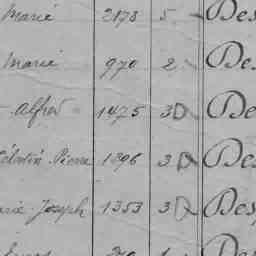 Marie 2178 5 Des
Marie 970 2 De
Alfred 1475 3D De
Pierre 1396 3D Des
Joseph 1353 3D Des